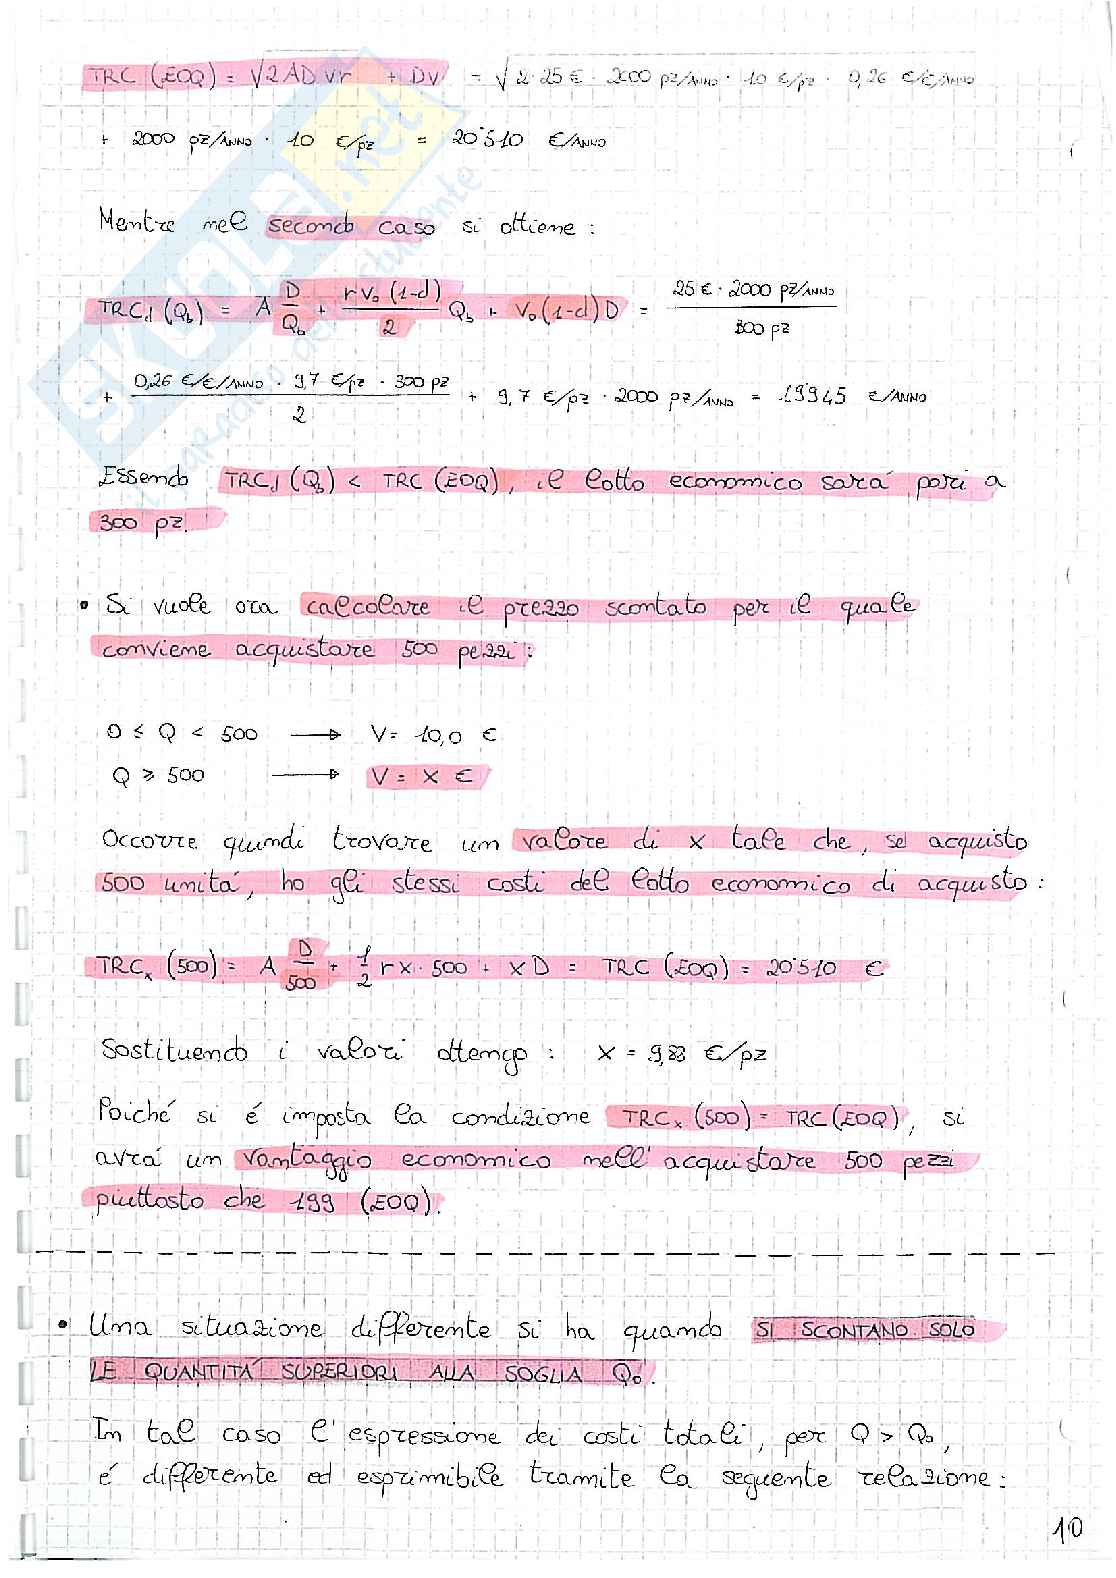 TRC (EOQ) = √2ADvr + Dv = √2·25 € · 2000 pz/ANNO · 10 €/pz · 0,26 €/€/ANNO
+ 2000 pz/ANNO · 10 €/pz = 20'510 €/ANNO
Mentre nel secondo caso si ottiene :
TRCd (Qb) = A D/Qb + rV₀(1-d)/2 Qb + V₀(1-d)D = 25 € · 2000 pz/ANNO / 300 pz
+ 0,26 €/€/ANNO · 9,7 €/pz · 300 pz / 2 + 9,7 €/pz · 2000 pz/ANNO = 19945 €/ANNO
Essendo TRCd (Qb) < TRC (EOQ), il lotto economico sará pari a
300 pz.
• Si vuole ora calcolare il prezzo scontato per il quale
conviene acquistare 500 pezzi :
0 ≤ Q < 500 → V = 10,0 €
Q ≥ 500 → V = x €
Occorre quindi trovare un valore di x tale che, se acquisto
500 unitá, ho gli stessi costi del lotto economico di acquisto :
TRCx (500) = A D/500 + 1/2 r x · 500 + x D = TRC (EOQ) = 20'510 €
Sostituendo i valori ottengo : x = 9,83 €/pz
Poiché si é imposta la condizione TRCx (500) = TRC (EOQ), si
avrá un vantaggio economico nell'acquistare 500 pezzi
piuttosto che 199 (EOQ).
• Una situazione differente si ha quando SI SCONTANO SOLO
LE QUANTITÁ SUPERIORI ALLA SOGLIA Q₀.
In tal caso l'espressione dei costi totali, per Q > Q₀,
é differente ed esprimibile tramite la seguente relazione :
10